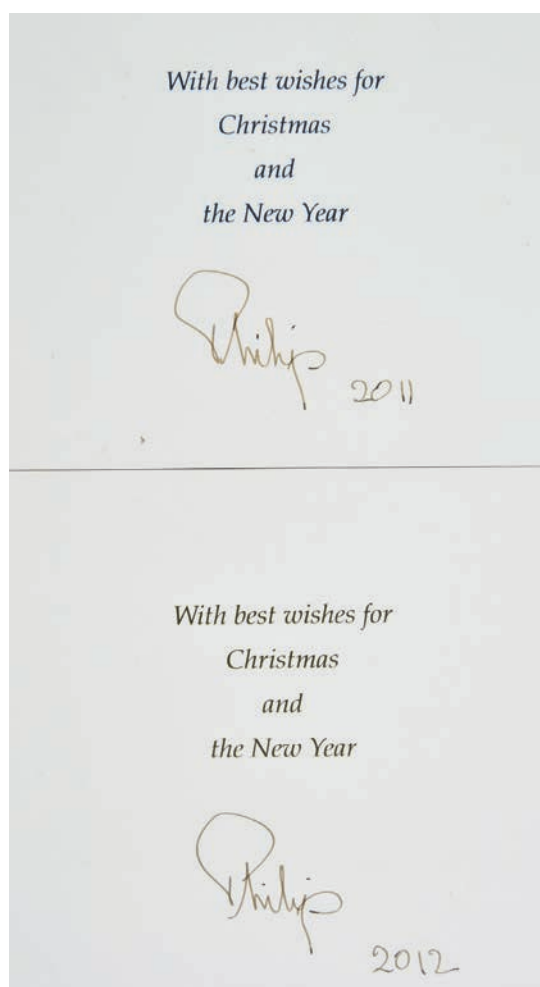 With best wishes for
Christmas
and
the New Year
Philip
2011
With best wishes for
Christmas
and
the New Year
Philip
2012